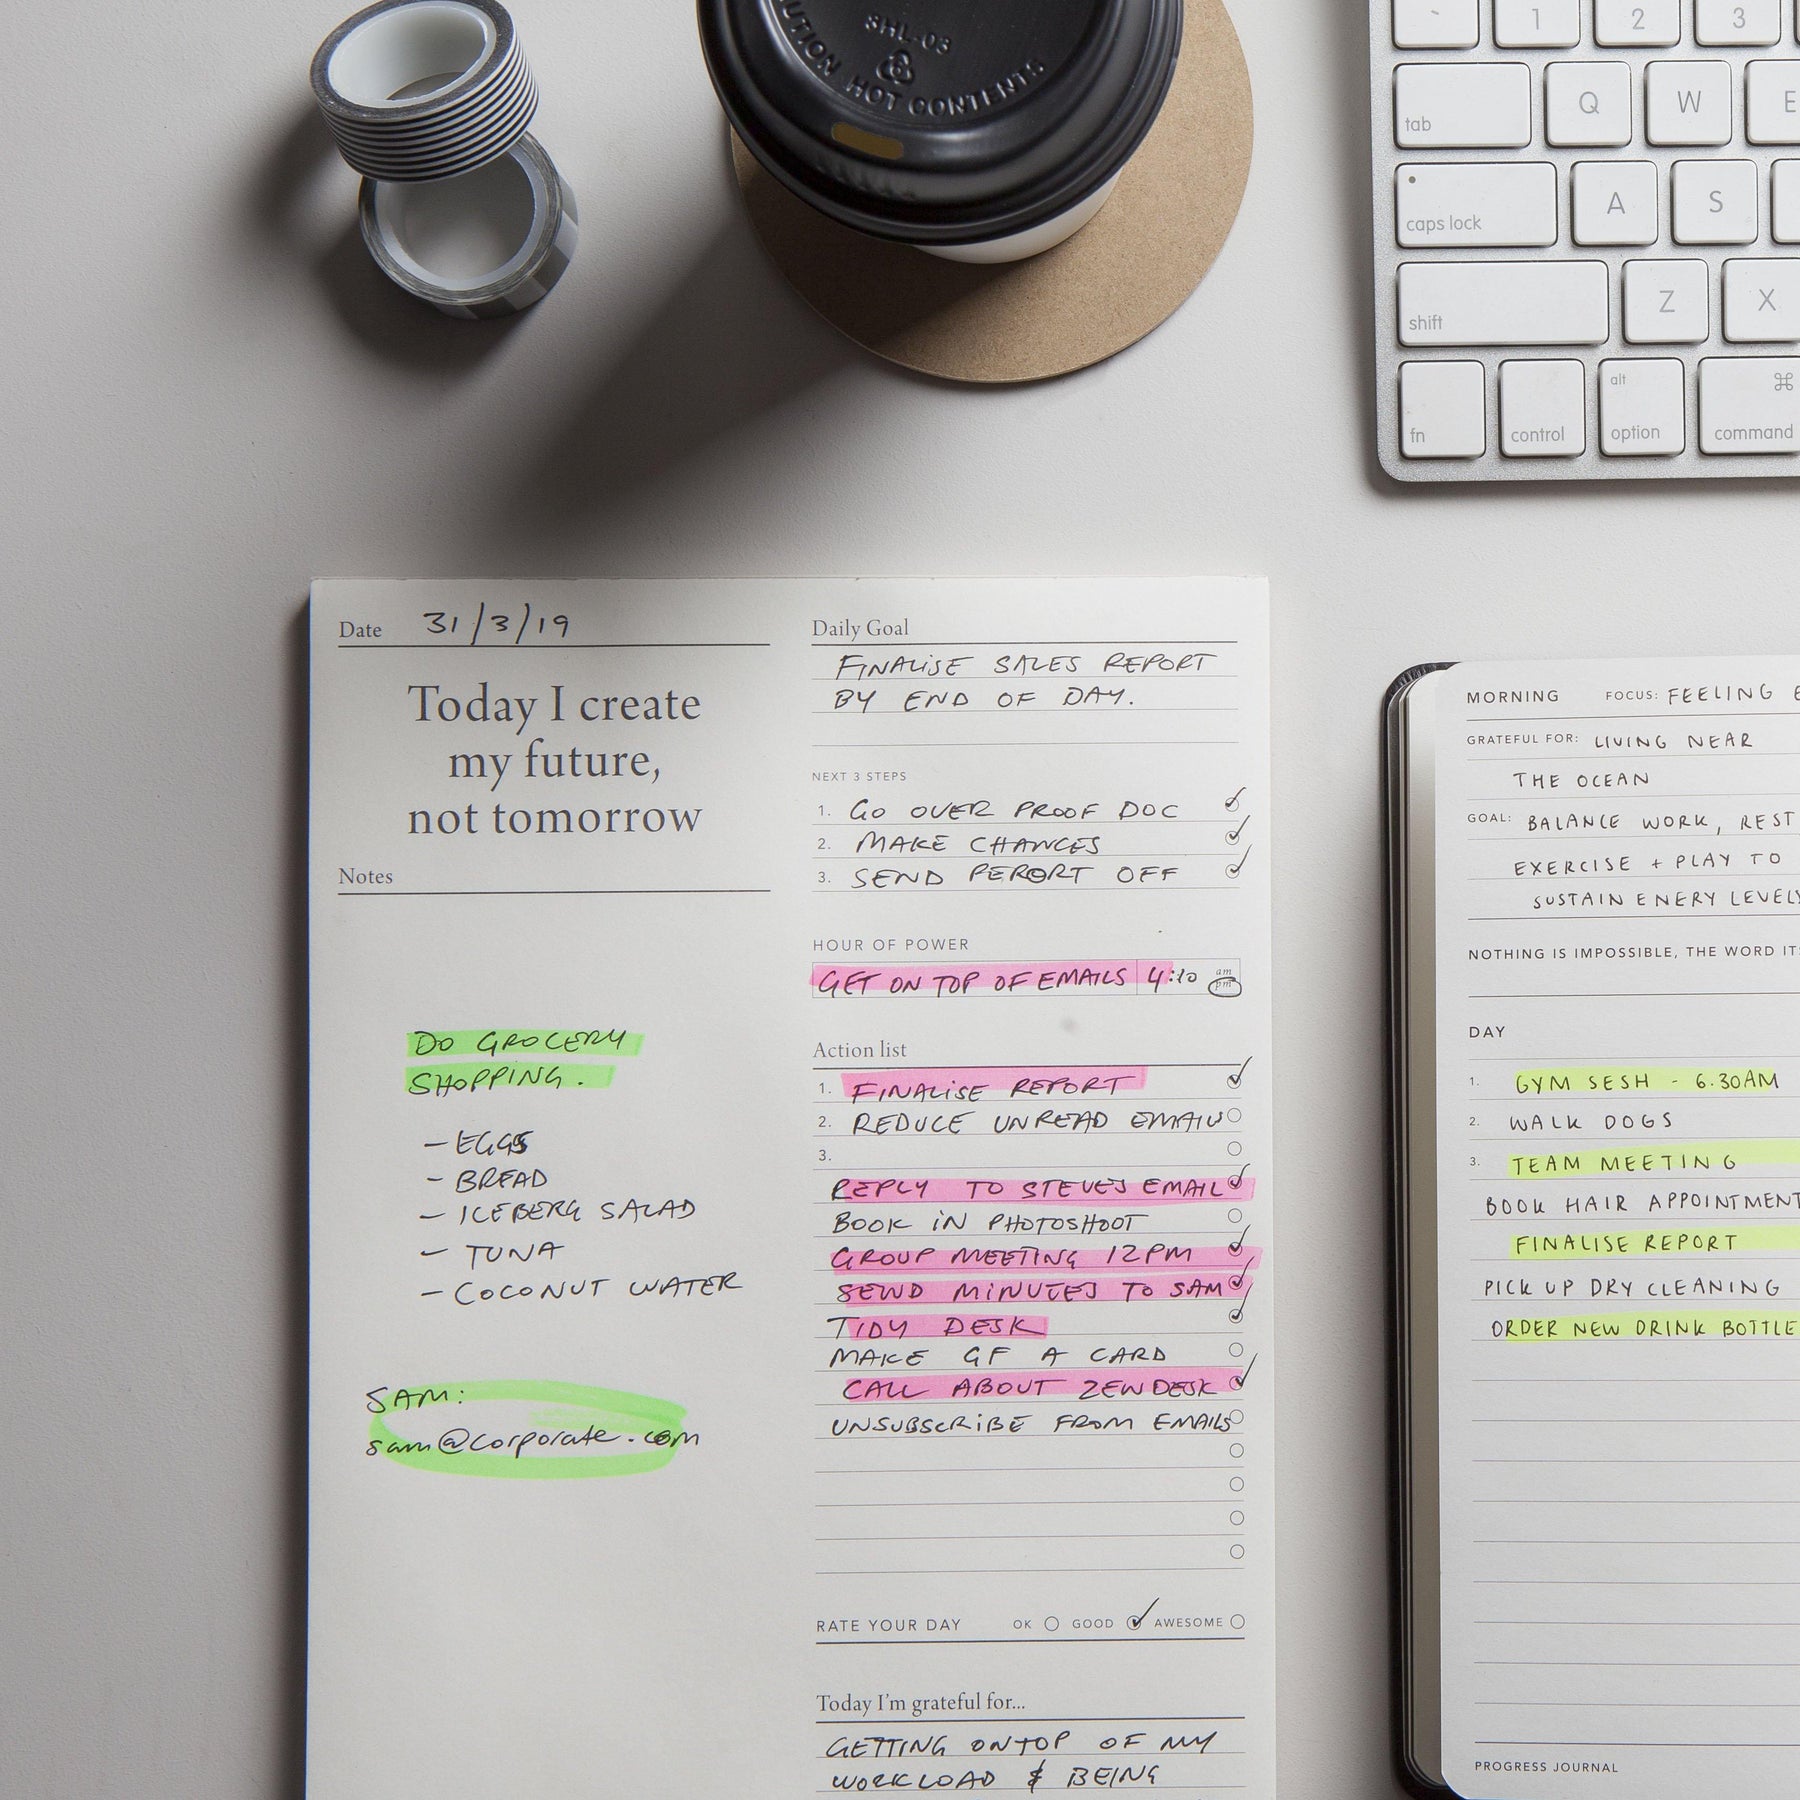 SHL-03
CAUTION HOT CONTENTS
~
1
2
3
tab
Q
W
E
caps lock
A
S
shift
Z
X
fn
control
alt
option
⌘
command
Date 31/3/19
Today I create
my future,
not tomorrow
Notes
DO GROCERY
SHOPPING.
- EGGS
- BREAD
- ICEBERG SALAD
- TUNA
- COCONUT WATER
SAM:
sam@corporate.com
Daily Goal
FINALISE SALES REPORT
BY END OF DAY.
NEXT 3 STEPS
1. GO OVER PROOF DOC
2. MAKE CHANGES
3. SEND REPORT OFF
HOUR OF POWER
GET ON TOP OF EMAILS 4:10 am
pm
Action list
1. FINALISE REPORT
2. REDUCE UNREAD EMAILS
3.
REPLY TO STEVES EMAIL
BOOK IN PHOTOSHOOT
GROUP MEETING 12PM
SEND MINUTES TO SAM
TIDY DESK
MAKE GF A CARD
CALL ABOUT ZENDESK
UNSUBSCRIBE FROM EMAILS
RATE YOUR DAY OK GOOD AWESOME
Today I'm grateful for...
GETTING ON TOP OF MY
WORKLOAD & BEING
MORNING FOCUS: FEELING
GRATEFUL FOR: LIVING NEAR
THE OCEAN
GOAL: BALANCE WORK, REST
EXERCISE + PLAY TO
SUSTAIN ENERY LEVELS
NOTHING IS IMPOSSIBLE, THE WORD
DAY
1. GYM SESH - 6.30AM
2. WALK DOGS
3. TEAM MEETING
BOOK HAIR APPOINTMENT
FINALISE REPORT
PICK UP DRY CLEANING
ORDER NEW DRINK BOTTLE
PROGRESS JOURNAL